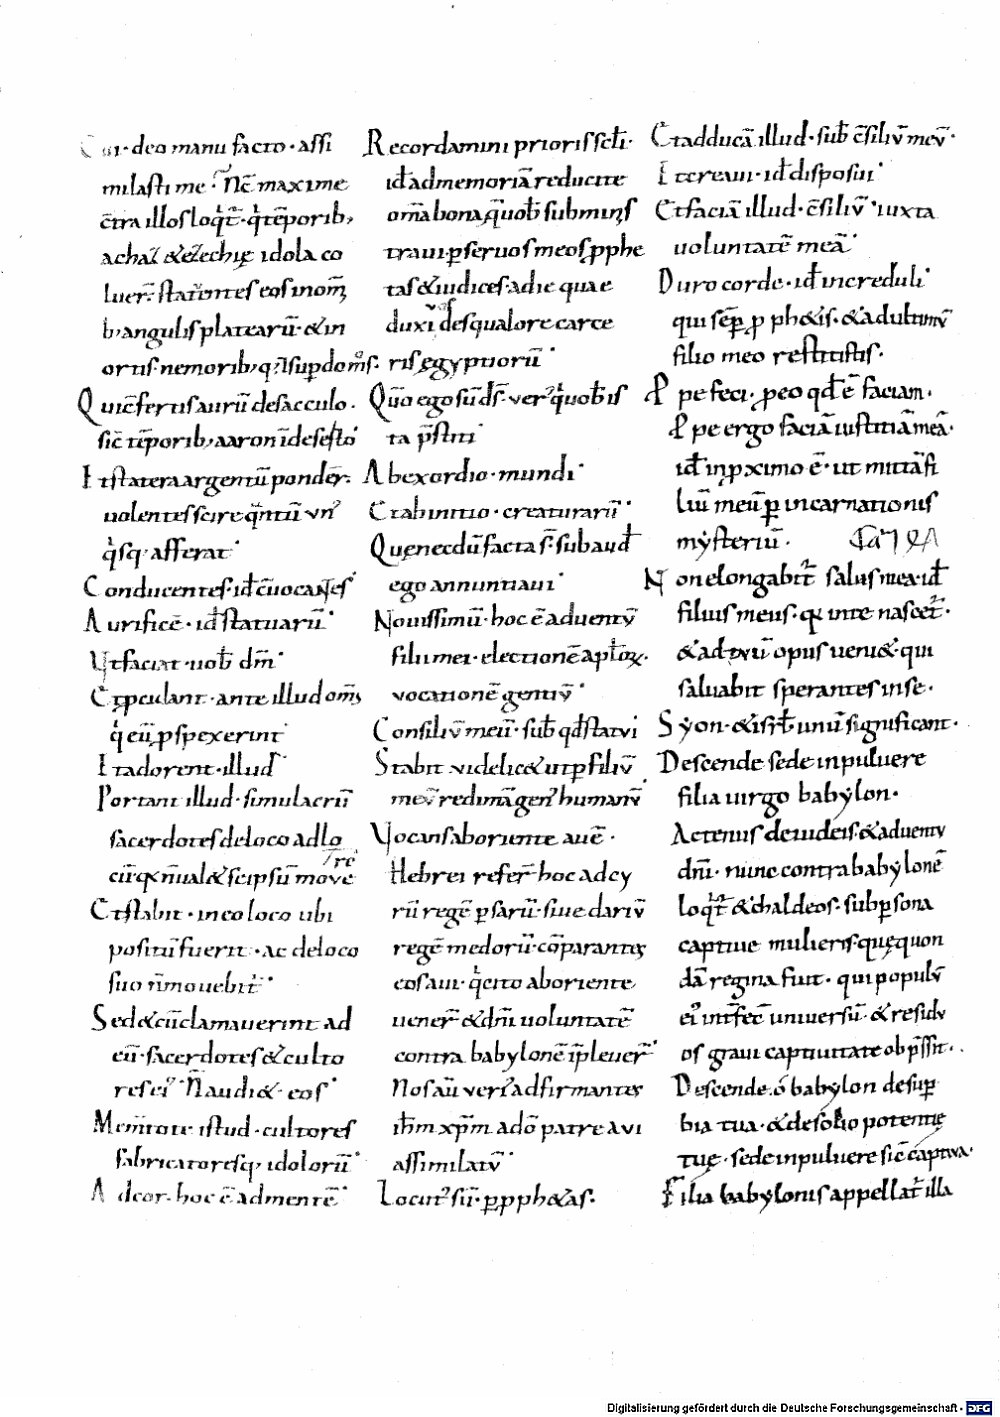 Cui · deo manu facto · assi
milasti me · N̄c maxime
c̄tra illos loq̇t̄ · q̇ tēporib;
achaz &ezechię idola co
luer̄ · statuentes eos in om̄
b; angulis platearū · & in
ortis · nemorib; q; ł sup domos ·
Qui cōfertis aurū de sacculo ·
sic̄ tēporib; aaron īde sesto
It statera argentū ponder̄ ·
uolentes scire q̄ntū vn᾽
q̇sq; afferat ·
Conducentes · id̄ c̄uocantes ·
Aurificē · id̄ statuarū ·
Vt faciat uob̄ dm̄ ·
Et p̱culant · ante illud om̄s
q̇ eū p̱spexerint
Et adorent · illud
Portant illud · simulacrū
sacerdotes de loco ad lo
cū · q̄a n̄ ual& se ipsū mov̄e
re
Et stabit · in eo loco ubi
positū fuerit · ac de loco
suo n̄ mouebit᾽ ·
Sed & cū clamauerint ad
eū · sacerdotes & culto
res ei᾽ · N̄ audi& · eos ·
Mem̄tote istud · cultores
fabricatoresq; idolorū ·
Ad cor · hoc ē ad mentē ·
Recordamini prioris sc̄li ·
id̄ ad memoriā reducite
om̄a bona q̄ uob̄ submīs
traui · p̱ seruos meos p̱phe
tas & iudices · a die qua e
duxi vos de squalore carce
ris egyptiorū ·
Qm̄ ego sū ds̄ · ver᾽ q̇ uob̄ is
ta p̄stiti
Ab exordio · mundi ·
Et ab initio · creaturarū ·
Quę necdū facta s̄ · subaud̄
ego annuntiaui ·
Nouissimū · hoc ē aduentū
filii mei · electionē apl̄oꝝ ·
vocationē gentiū ·
Consiliū meū · sub̄ qd̄ statui
Stabit videlic& ut p̱ filiū
meū redimā gen᾽ humanū
Vocans ab oriente auē ·
Hebrei refer̄ hoc ad cy
rū regē p̱sarū · siue dariū
regē medorū · cōparantes
eos aui · q̇ cito ab oriente
uener̄ & dn̄i uoluntatē
contra babylonē īpleuer̄ ·
Nos aū ver᾽ adfirmantes
ih̄m xp̄m a dō patre avi
assimilatū ·
Locut᾽ sū · p̱ p̱ph&as ·
Et adducā illud · sub̄ c̄siliū meū ·
Et creaui · id̄ disposui ·
Et faciā illud · c̄siliū · iuxta
uoluntatē meā ·
Duro corde · id̄ increduli ·
qui sēp̱ p̱ph&is · & aduentui
filio meo restitistis ·
Ppe feci · p̱ eo qd̄ ē faciam ·
Ppe ergo faciā iustitiā meā ·
id̄ in p̱ximo ē · ut mittā fi
liū meū p̱ incarnationis
mysteriū ·
Non elongabit᾽ salus mea · id̄
filius meus · q̄ in te nascet᾽ ·
& ad tuū opus ueni& · qui
saluabit sperantes in se ·
Syon · & isr̄l unū significant ·
Descende sede in puluere
filia uirgo babylon ·
Actenus de iudeis · & aduentu
dn̄i · nunc contra babylonē
loq̇t᾽ & chaldeos · sub p̱sona
captiue mulieris · quę quon
dā regina fuit · qui populū
ei᾽ int̄fec̄ uniuersū · & residu
os graui captiuitate ob p̄ssit ·
Descende · o babylon de sup̱
bia tua · & de solio potentię
tuę · sede in puluere sic̄ captiva ·
Filia babylonis appellat᾽ illa
Digitalisierung gefördert durch die Deutsche Forschungsgemeinschaft - DFG